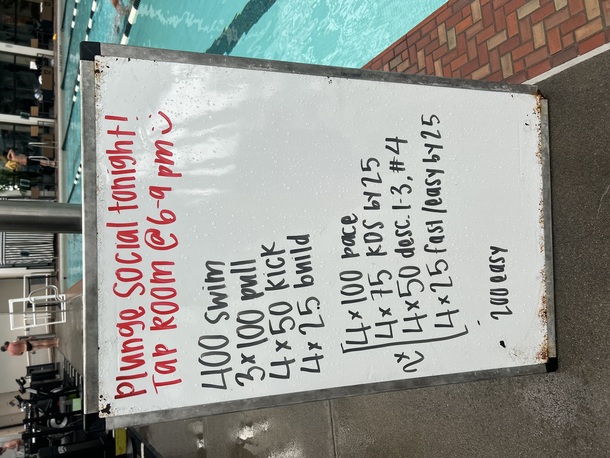 Plunge Social tonight!
Tap Room @ 6-9 pm
400 swim
3x100 pull
4x50 kick
4x25 build
4x100 pace
4x75 KDS by 25
2x
4x50 desc. 1-3, #4
4x25 fast/easy by 25
200 easy